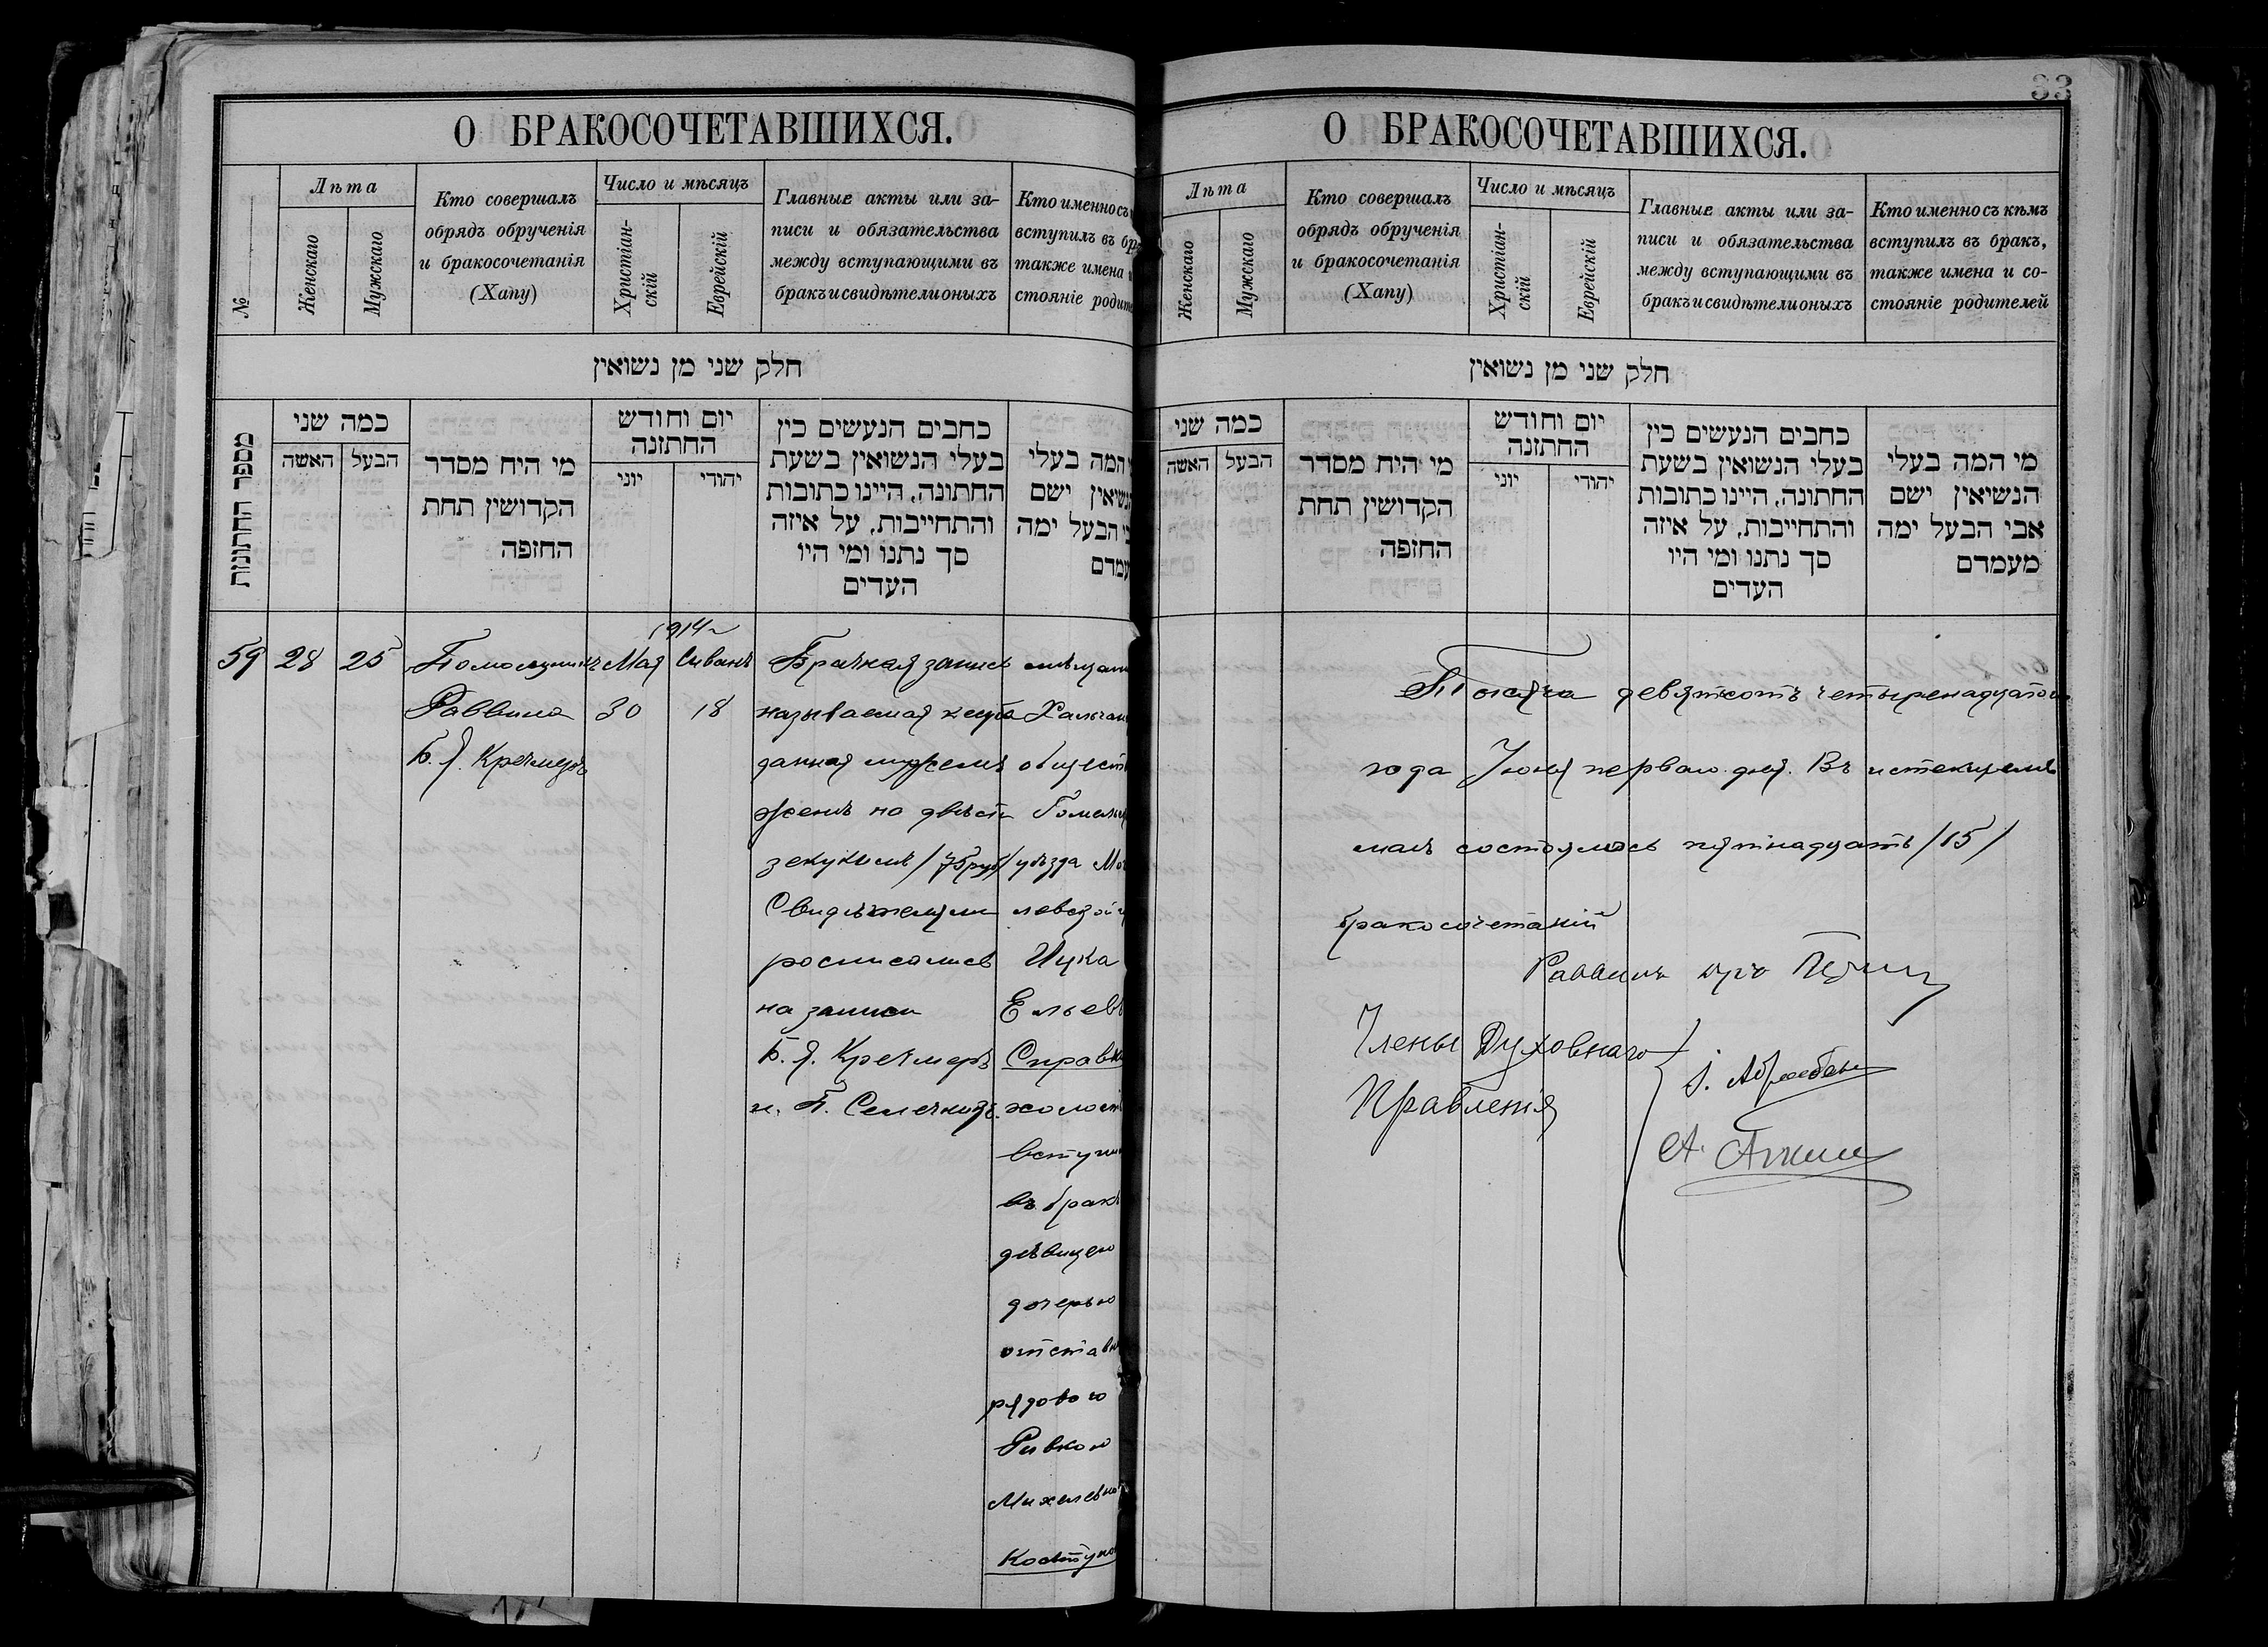 О БРАКОСОЧЕТАВШИХСЯ.
№
Лѣта
Женскаго
Мужскаго
Кто совершалъ
обрядъ обрученія
и бракосочетанія
(Хапу)
Число и мѣсяцъ
Христіан-
скій
Еврейскій
Главные акты или за-
писи и обязательства
между вступающими въ
бракъ и свидѣтели оныхъ
Кто именно съ
вступилъ въ бр
также имена и
стояніе родит
חלק שני מן נשואין
מספר החתונות
כמה שני
האשה
הבעל
מי היח מסדר
הקדושין תחת
החזפה
יום וחודש
החתזנה
יוני
יהודי
כחבים הנעשים כין
בעלי הנשואין בשעת
החתונה, היינו כתובות
והתחייבות, על איזה
סך נתנו ומי היו
העדים
המה בעלי
נשיאין ישם
בי הבעל ימה
עמדם
59
28
25
Помощникъ
Раввина
Б. Я. Кречмеръ
1914 г
Мая
30
Сиванъ
18
Брачная запись
называемая кетуба
данная мужемъ
женѣ на двѣсти
зекукимъ /75 руб/
Свидѣтели
росписались
на записи
Б. Я. Кречмеръ
и П. Семечковъ.
мѣщан
Хальчан
обществ
Гомельск
уѣзда Мог
левской г
Ицка
Ельевъ
Справк
холост
вступи
въ бракъ
дѣвицею
дочерью
отставн
рядового
Ривкою
Михелевно
Костуко
33
О БРАКОСОЧЕТАВШИХСЯ.
Лѣта
Женскаго
Мужскаго
Кто совершалъ
обрядъ обрученія
и бракосочетанія
(Хапу)
Число и мѣсяцъ
Христіан-
скій
Еврейскій
Главные акты или за-
писи и обязательства
между вступающими въ
бракъ и свидѣтели оныхъ
Кто именно съ кѣмъ
вступилъ въ бракъ,
также имена и со-
стояніе родителей
חלק שני מן נשואין
כמה שני
האשה
הבעל
מי היח מסדר
הקדושין תחת
החזפה
יום וחודש
החתזנה
יוני
יהודי
כחבים הנעשים כין
בעלי הנשואין בשעת
החתונה, היינו כתובות
והתחייבות, על איזה
סך נתנו ומי היו
העדים
מי המה בעלי
הנשיאין ישם
אבי הבעל ימה
מעמדם
Тысяча девятсотъ четыренадцатого
года Іюня перваго дня. Въ истекшемъ
маѣ состоялось пятнадцать /15/
бракосочетаній
Раввинъ
Члены Духовнаго
Правленія